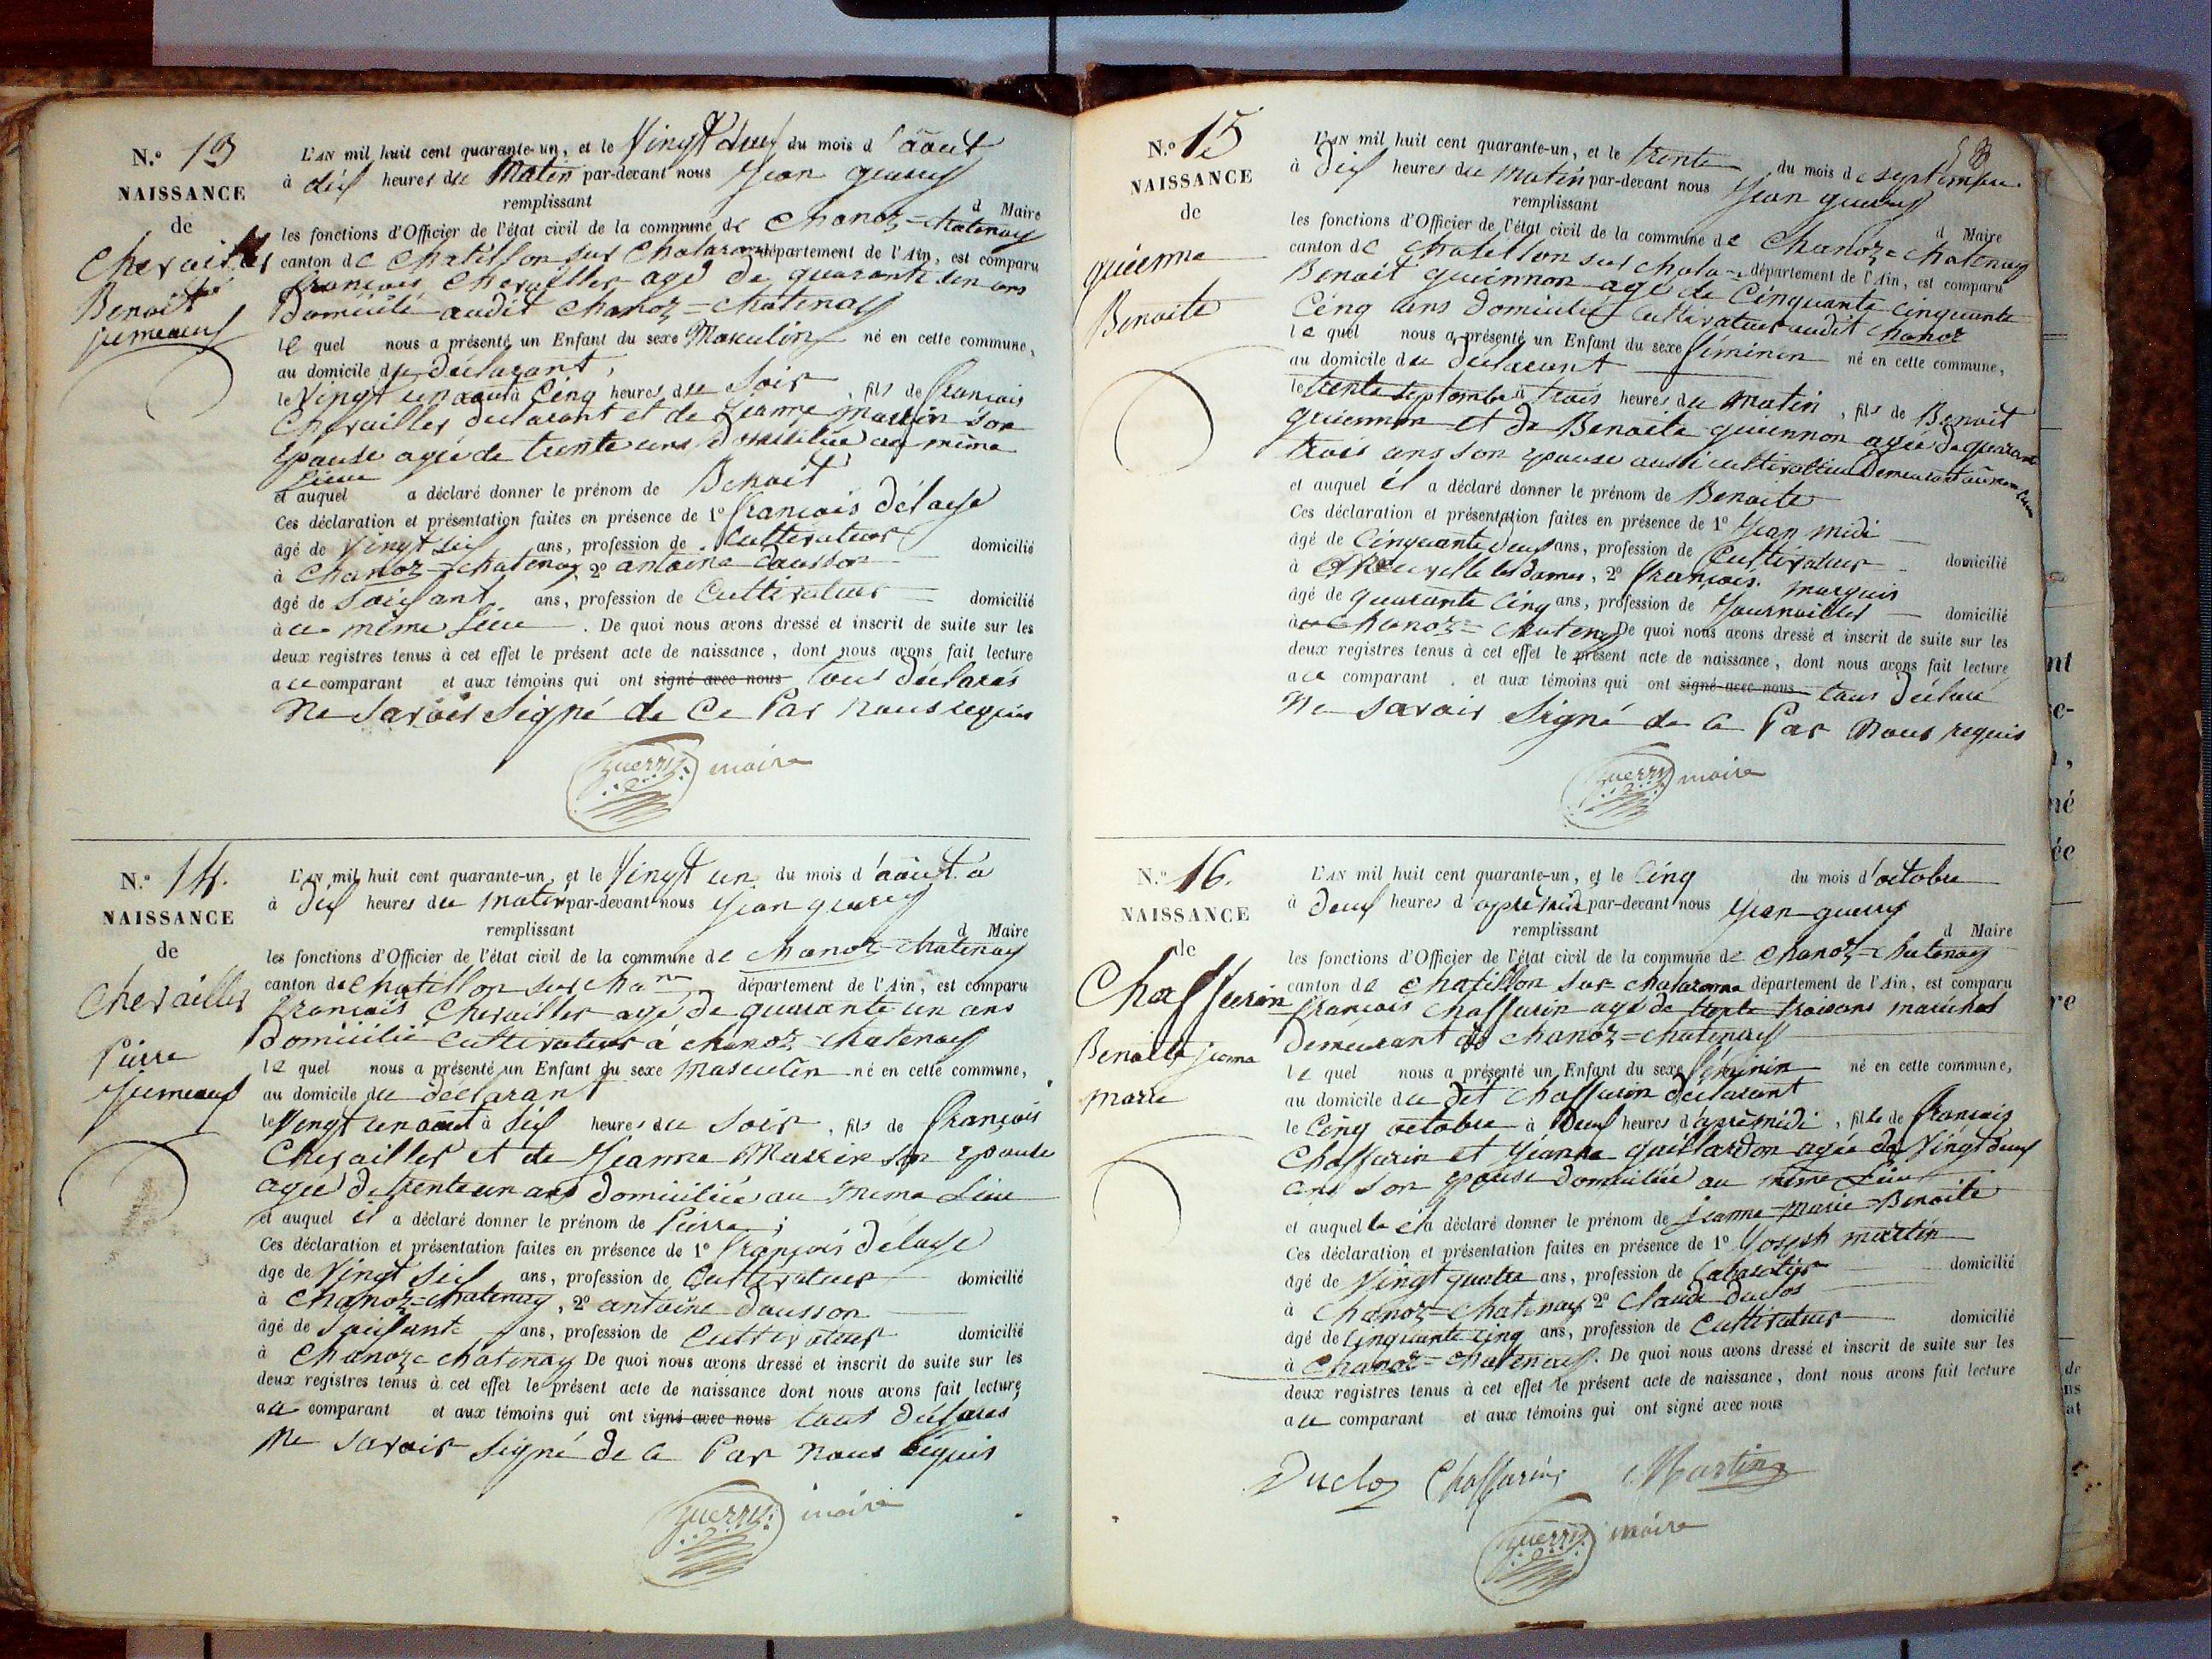 N.º 13
NAISSANCE
de
Chevailler
Benoit
jumeaux
L'AN mil huit cent quarante-un, et le Vingt deux du mois d'août
à dix heures du Matin par-devant nous Jean guerry
remplissant d Maire
les fonctions d'Officier de l'état civil de la commune de Chanoz=chatenay
canton de Chatillon sur Chalaronne département de l'Ain, est comparu
françois Chevailler agé de quarante un ans
Domicilié audit Chanoz=chatenay
le quel nous a présenté un Enfant du sexe Masculin né en cette commune,
au domicile du declarant,
le Vingt un août à Cinq heures du Soir, fils de françois
Chevailler declarant et de Jeanne Marrin son
epouse agée de trente un ans domiciliée au même
lieue
et auquel a déclaré donner le prénom de Benoit
Ces déclaration et présentation faites en présence de 1º françois délaye
âgé de Vingt six ans, profession de Cultivateur domicilié
à Chanoz=chatenay, 2º antoine dausson
âgé de Soixant ans, profession de Cultivateur domicilié
à ce même lieu. De quoi nous avons dressé et inscrit de suite sur les
deux registres tenus à cet effet le présent acte de naissance, dont nous avons fait lecture
au comparant et aux témoins qui ont signé avec nous tous déclarés
Ne Savoir Signé de Ce Par Nous requis
guerry maire
N.º 14.
NAISSANCE
de
Chevailler
Pierre
Jumeaux
L'AN mil huit cent quarante-un, et le Vingt un du mois d'août à
à dix heures du matin par-devant nous Jean guerry
remplissant d Maire
les fonctions d'Officier de l'état civil de la commune de Chanoz-chatenay
canton de Chatillon sur Cha département de l'Ain, est comparu
françois Chevailler agé de quarante un ans
Domicilié Cultivateur à chanoz-chatenay
le quel nous a présenté un Enfant du sexe Masculin né en cette commune,
au domicile du déclarant
le Vingt un août à Six heures du Soir, fils de François
Chevailler et de Jeanne Marrin son epouse
agée de trente un ans domiciliée au meme Lieu
et auquel il a déclaré donner le prénom de Pierre;
Ces déclaration et présentation faites en présence de 1º françois délaye
âge de Vingt Six ans, profession de Cultivateur domicilié
à Chanoz=chatenay, 2º antoine dausson
âgé de Soixante ans, profession de Cultivateur domicilié
à Chanoz=chatenay De quoi nous avons dressé et inscrit de suite sur les
deux registres tenus à cet effet le présent acte de naissance dont nous avons fait lecture
au comparant et aux témoins qui ont signé avec nous tous déclarés
Ne Savoir Signé de Ce Par Nous réquis
guerry maire
N.º 15
NAISSANCE
de
guienne
Benoite
L'AN mil huit cent quarante-un, et le trente du mois de septembre
à Dix heures du matin par-devant nous Jean guerry
remplissant d Maire
les fonctions d'Officier de l'état civil de la commune de Chanoz=chatenay
canton de Chatillon sur Chala département de l'Ain, est comparu
Benoit guiennon agé de Cinquante cinquante
Cinq ans Domicilié Cultivateur audit Chanoz
le quel nous a présenté un Enfant du sexe féminin né en cette commune,
au domicile du declarant
le trente septembre à trois heures du matin, fils de Benoit
guiennon et de Benoite guiennon agée de quarante
trois ans son epouse aussi cultivatrice Demeurant au même lieu
et auquel il a déclaré donner le prénom de Benoite
Ces déclaration et présentation faites en présence de 1º Jean midi
âgé de Cinquante deux ans, profession de Cultivateur domicilié
à Neuville les dames, 2º françois marguin
âgé de quarante Cinq ans, profession de Journailler domicilié
à Chanoz=Chateny De quoi nous avons dressé et inscrit de suite sur les
deux registres tenus à cet effet le présent acte de naissance, dont nous avons fait lecture
au comparant et aux témoins qui ont signé avec nous tous déclaré
Ne Savoir Signé de Ce Par Nous requis
guerry maire
N.º 16.
NAISSANCE
de
Chaffurin
Benoite jeanne
marie
L'AN mil huit cent quarante-un, et le Cinq du mois d'octobre
à deux heures d'après midi par-devant nous Jean guerry
remplissant d Maire
les fonctions d'Officier de l'état civil de la commune de Chanoz-chatenay
canton de Chatillon sur chalaronne département de l'Ain, est comparu
françois Chaffurin agé de trente trois ans maréchal
Demeurant à Chanoz=chatenay
le quel nous a présenté un Enfant du sexe féminin né en cette commune,
au domicile du dit Chaffurin declarant
le Cinq octobre à Deux heures d'aprèsmidi, fille de françois
Chaffurin et Jeanne gaillardon agée de Vingt deux
ans son epouse domiciliée au même Lieu
et auquel le il a déclaré donner le prénom de jeanne-marie-Benoite
Ces déclaration et présentation faites en présence de 1º Joseph martin
âgé de Vingt quatre ans, profession de domicilié
à Chanoz-Chatenay 2º Claude duclos
âgé de Cinquante cinq ans, profession de Cultivateur domicilié
à Chanoz=Chatenay. De quoi nous avons dressé et inscrit de suite sur les
deux registres tenus à cet effet le présent acte de naissance, dont nous avons fait lecture
au comparant et aux témoins qui ont signé avec nous
Duclos Chaffurin Martin
guerry maire